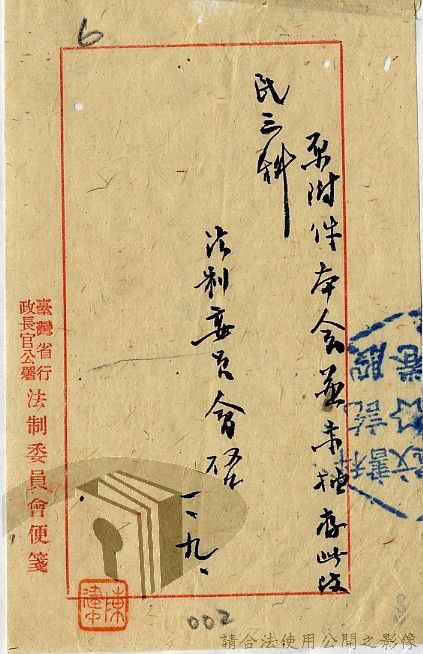 6
原附件本会並未抽存此致
民三科
法制委員會啓 一、九、
臺灣省行政長官公署法制委員會便箋
002
請合法使用公開之影像